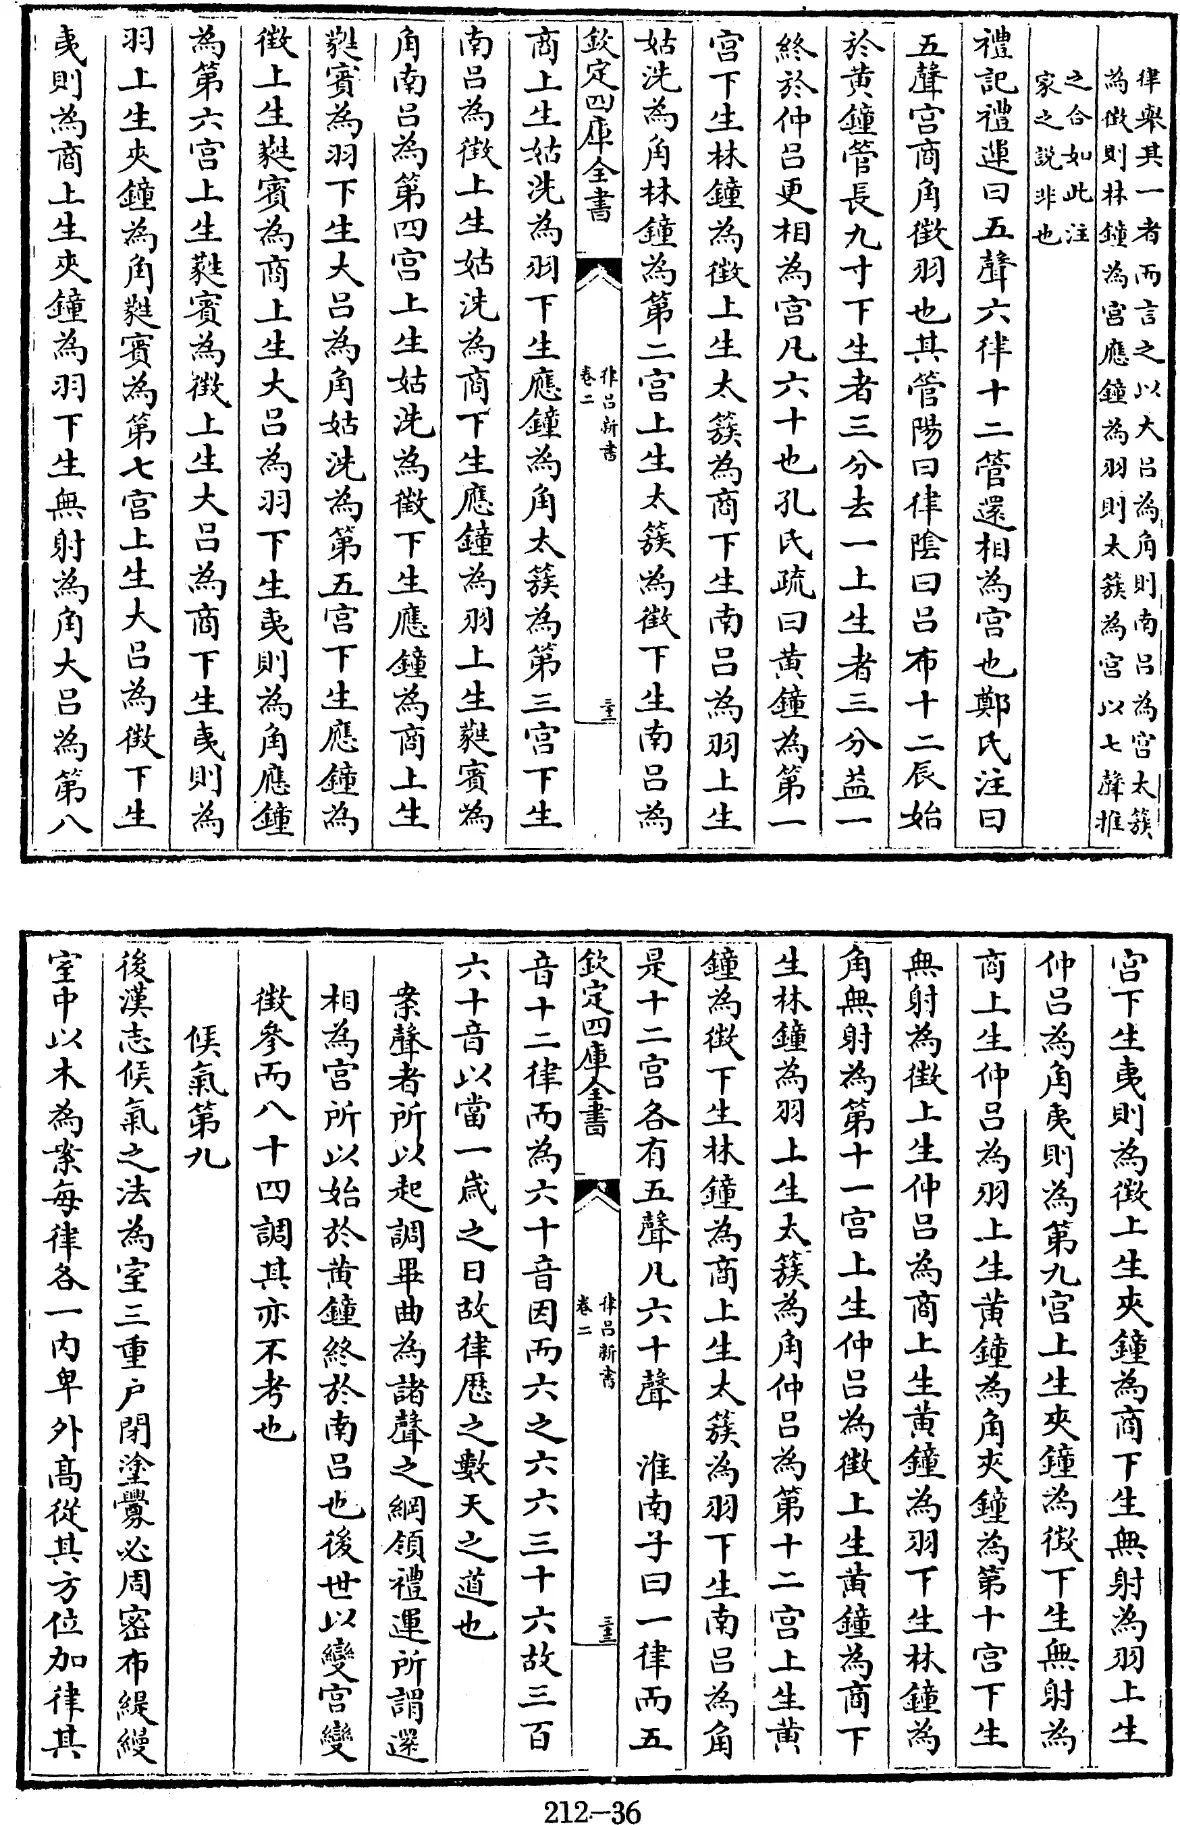 律舉其一者而言之以大呂為角則南呂為宮太簇
為徵則林鐘為宮應鐘為羽則太簇為宮以七聲推
之合如此注
家之説非也
禮記禮運曰五聲六律十二管還相為宮也鄭氏注曰
五聲宮商角徵羽也其管陽曰律陰曰呂布十二辰始
於黃鐘管長九寸下生者三分去一上生者三分益一
終於仲呂更相為宮凡六十也孔氏疏曰黃鐘為第一
宮下生林鐘為徵上生太簇為商下生南呂為羽上生
姑洗為角林鐘為第二宮上生太簇為徵下生南呂為
欽定四庫全書
律呂新書
卷二
三十三
商上生姑洗為羽下生應鐘為角太簇為第三宮下生
南呂為徵上生姑洗為商下生應鐘為羽上生蕤賓為
角南呂為第四宮上生姑洗為徵下生應鐘為商上生
蕤賓為羽下生大呂為角姑洗為第五宮下生應鐘為
徵上生蕤賓為商上生大呂為羽下生夷則為角應鐘
為第六宮上生蕤賓為徵上生大呂為商下生夷則為
羽上生夾鐘為角蕤賓為第七宮上生大呂為徵下生
夷則為商上生夾鐘為羽下生無射為角大呂為第八
宮下生夷則為徵上生夾鐘為商下生無射為羽上生
仲呂為角夷則為第九宮上生夾鐘為徵下生無射為
商上生仲呂為羽上生黃鐘為角夾鐘為第十宮下生
無射為徵上生仲呂為商上生黃鐘為羽下生林鐘為
角無射為第十一宮上生仲呂為徵上生黃鐘為商下
生林鐘為羽上生太簇為角仲呂為第十二宮上生黃
鐘為徵下生林鐘為商上生太簇為羽下生南呂為角
是十二宮各有五聲凡六十聲　淮南子曰一律而五
欽定四庫全書
律呂新書
卷二
音十二律而為六十音因而六之六六三十六故三百
六十音以當一歲之日故律歷之數天之道也
案聲者所以起調畢曲為諸聲之綱領禮運所謂還
相為宮所以始於黃鐘終於南呂也後世以變宮變
徵參而八十四調其亦不考也
候氣第九
後漢志候氣之法為室三重户閉塗釁必周密布緹縵
室中以木為案每律各一内卑外髙從其方位加律其
212-36